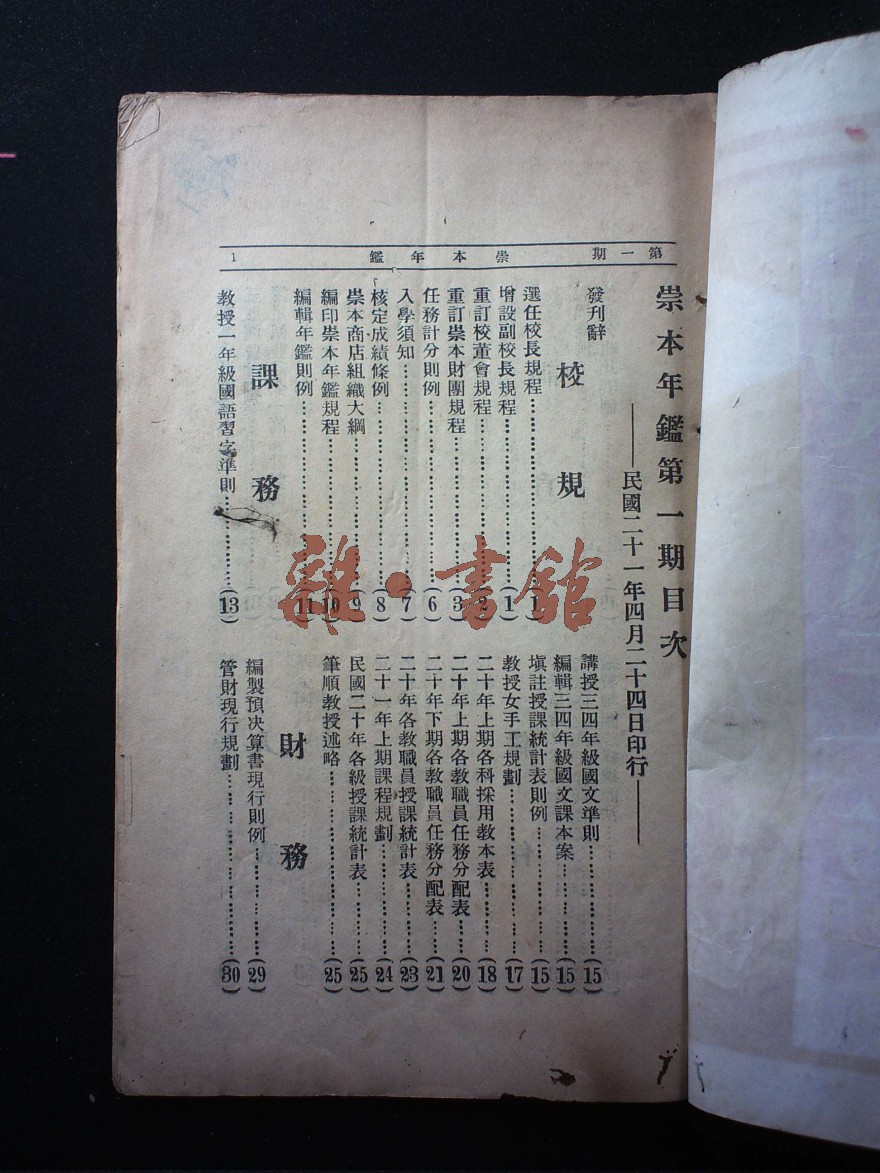 第一期　崇本年鑑　1
崇本年鑑第一期目次
——民國二十一年四月二十四日印行——
發刊辭
校規
選任校長規程…………(1)
增設副校長規程…………(1)
重訂校董會規程…………(2)
重訂崇本財團規程…………(3)
任務計分則例…………(6)
入學須知…………(7)
核定成績條例…………(8)
崇本商店組織大綱…………(9)
編印崇本年鑑規程…………(10)
編輯年鑑則例…………(11)
課務
教授一年級國語習字準則…………(13)
講授三四年級國文準則…………(15)
編輯三四年級國文課本案…………(15)
塡註授課統計表則例…………(15)
教授女手工規劃…………(17)
二十年上期各科採用教本表…………(18)
二十年上期各教職員任務分配表…………(20)
二十年下期各教職員任務分配表…………(21)
二十年各教職員授課統計表…………(23)
二十一年上期課程規劃…………(24)
民國二十年各級授課統計表…………(25)
筆順教授述略…………(25)
財務
編製預決算書現行則例…………(29)
管財現行規劃…………(30)
雜·書館